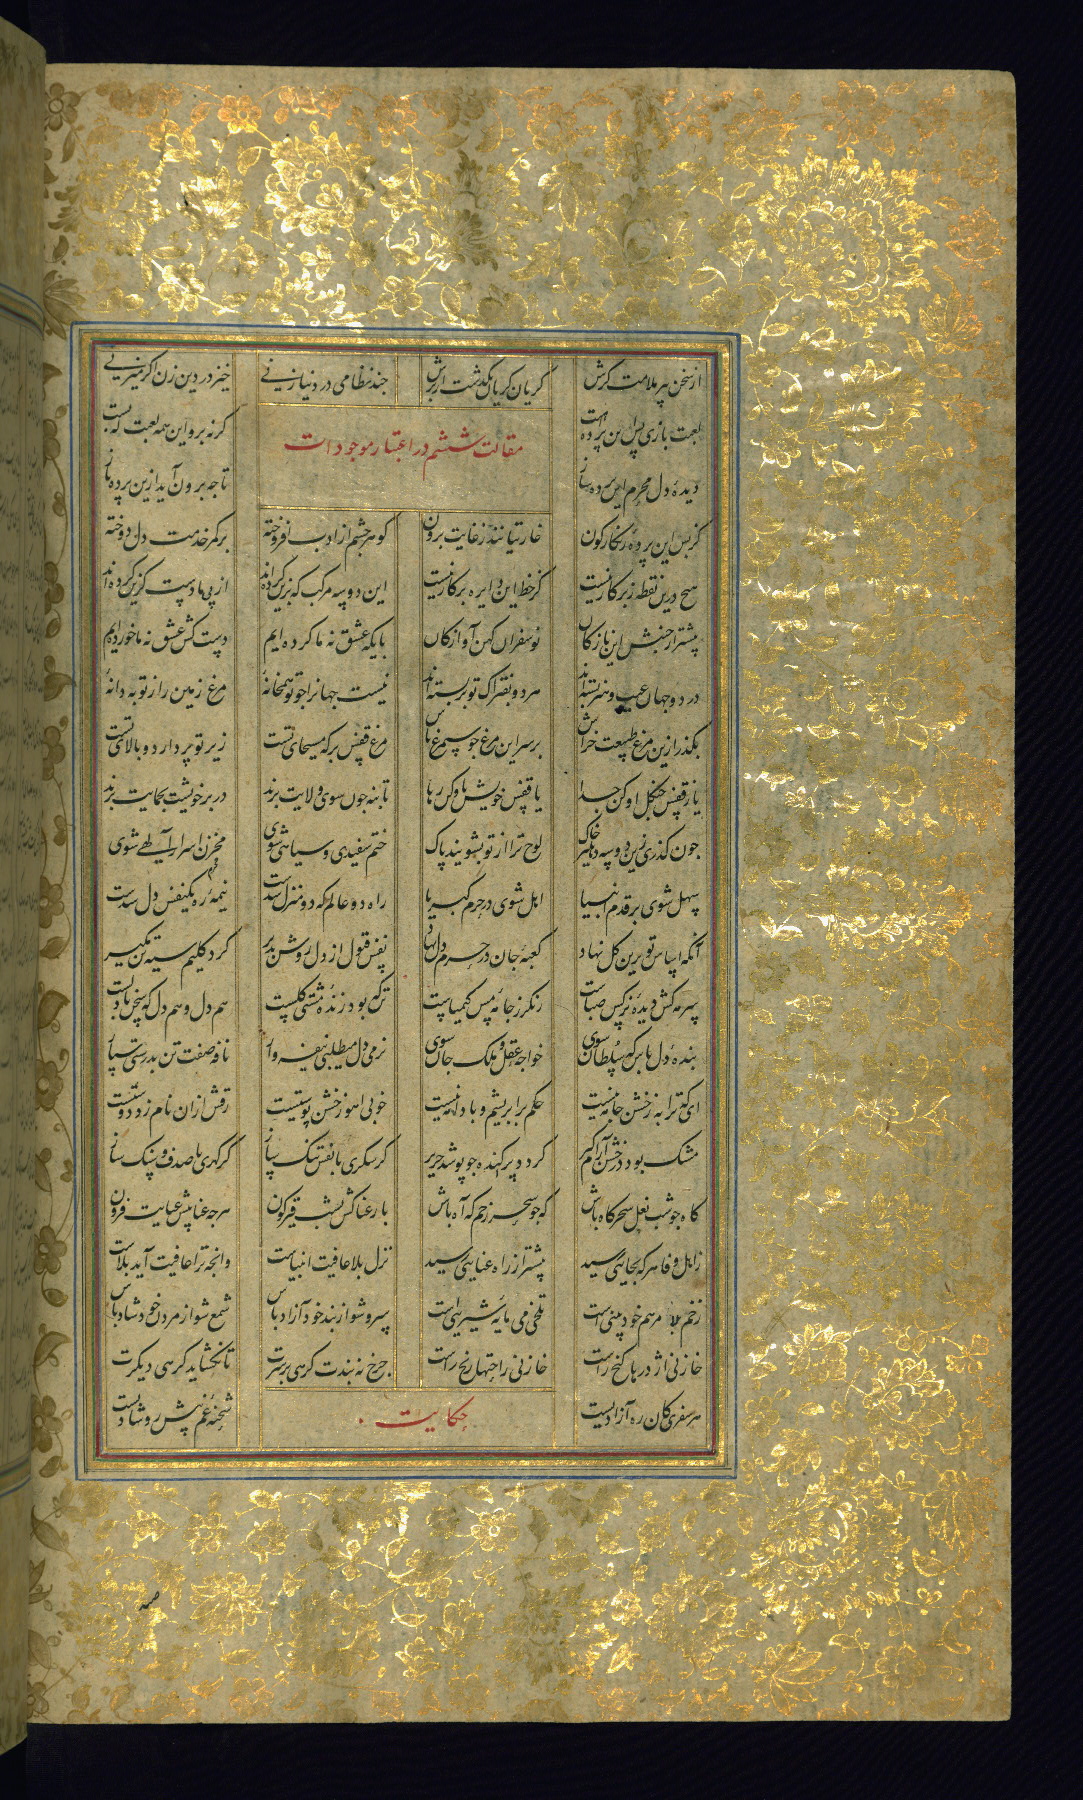 از سخن پیر ملامت گرش گریان گریان بگذشت از برش چند نظامی در دنیا زنی خیز در دین زن اگر میزنی
مقالت ششم در اعتبار موجودات
لعبت بازی پس این پرده هست گرنه برو این همه لعبت که بست
دیده دل محرم این پرده ساز تا چه برون آید ازین پرده باز
کز پس این پرده زنگارگون غارتیانند ز غایت برون گوهر چشم از ادب افروخته بر کمر خدمت دل دوخته
هیچ درین نقطه ز پرکار نیست کز خط این دایره بر کار نیست این دوسه مرکب که بزین کرده اند از پی ما دست گزین کرده اند
پیشتر از جنبش این تازگان نوسفران کهن آوازگان با یکه عشق نه ما کرده ایم دست کش عشق نه ما خورده ایم
در دو جهان عیب و هنر بسته اند هر دو بفتراک تو بر بسته اند نیست جهانرا چو تو همخانه مرغ زمین را ز تو به دانه
بگذر ازین مرغ طبیعت خراش بر سر این مرغ چو سیمرغ باش مرغ قفس بر که مسیحای تست زیر تو پر دارد و بالای تست
یا ز قفس چنگل او کن جدا یا قفس خویش باو کن رها تا بنه چون سوی ولایت برد در پر خویشت بحمایت برد
چون گذری زین دوسه دهلیز خاک لوح ترا از تو بشویند پاک ختم سفیدی و سیاهی شوی مخزن اسرار آلهی شوی
سهل شوی بر قدم انبیا اهل شوی در حرم کبریا راه دو عالم که دو منزل شدست نیمه ره یکنفس دل شدست
آنکه اساس تو برین گل نهاد کعبه جان در حرم دل نهاد نقش قبول از دل روشن پذیر گرد گلیم سیه تن مگیر
سرمه کش دیده نرگس صباست رنگرز جامه مس کیمیاست تن که بود زنده مشتی گلست هم دل و هم دل که سخن با دلست
بنده دل باش که سلطان شوی خواجه عقل و ملک جان شوی نرمی دل میطلبی نیفه وار نافه صفت تن بدرستی سپار
ای که ترا به ز خشن جامه نیست حکم بر ابریشم و بادامه نیست خوبی آهو ز خشن پوستیست رقش از آن نام زد دوستیست
مشک بود در خشن آرام گیر گردد پرکنده چو پوشد حریر گر شکری با نفس تنگ ساز گر گهری با صدف و سنگ ساز
گاه چو شب نعل سحرگاه باش گه چو سحر زخم گه آه باش بار عنا کش بشب قیرگون هر چه عنا بیش عنایت فزون
ز اهل وفا هر که بجایی رسید پیشتر از راه عنایی رسید نزل بلا عافیت انبیاست وانچه ترا عافیت آید بلاست
زخم بلا مرهم خود بینی است تلخی می مایه شیرینی است سرو شو از بند خود آزاد باش شمع شو از مردن خود شاد باش
خازنی اژدرها گنج راست خازنی راحتها رنج راست چرخ نه بندت گرهی بر سرت تا نگشاید گرهی دیگرت
هر سفری کان ره آزادیست شحنه غم پیش رو شادیست
حکایت